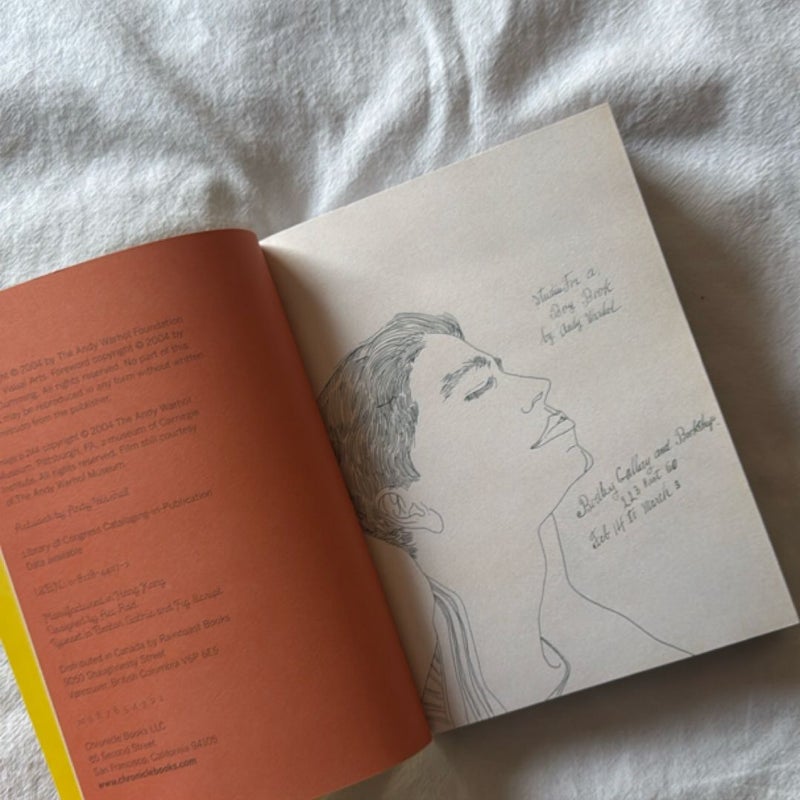 © 2004 by The Andy Warhol Foundation
Visual Arts. Foreword copyright © 2004 by
Cumming. All rights reserved. No part of this
may be reproduced in any form without written
from the publisher.
copyright © 2004 The Andy Warhol
Museum, Pittsburgh, PA, a museum of Carnegie
Institute. All rights reserved. Film still courtesy
of The Andy Warhol Museum.
by Andy Warhol
Library of Congress Cataloging-in-Publication
Data available
Manufactured in Hong Kong
Designed by
Typeset in Benton Gothic and Fig Script
Distributed in Canada by Raincoast Books
9050 Shaughnessy Street
Vancouver, British Columbia V6P 6E5
Chronicle Books LLC
85 Second Street
San Francisco, California 94105
www.chroniclebooks.com
Studies For a
Boy Book
by Andy Warhol
Bodley Gallery and Bookshop
223 East 60
Feb 14 to March 3